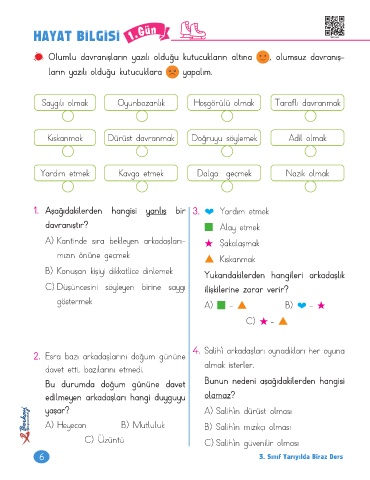 HAYAT BİLGİSİ 1. Gün
Olumlu davranışların yazılı olduğu kutucukların altına , olumsuz davranış-
ların yazılı olduğu kutucuklara yapalım.
Saygılı olmak Oyunbozanlık Hoşgörülü olmak Taraflı davranmak
Kıskanmak Dürüst davranmak Doğruyu söylemek Adil olmak
Yardım etmek Kavga etmek Dalga geçmek Nazik olmak
1. Aşağıdakilerden hangisi yanlış bir
davranıştır?
A) Kantinde sıra bekleyen arkadaşları-
mızın önüne geçmek
B) Konuşan kişiyi dikkatlice dinlemek
C) Düşüncesini söyleyen birine saygı
göstermek
2. Esra bazı arkadaşlarını doğum gününe
davet etti, bazılarını etmedi.
Bu durumda doğum gününe davet
edilmeyen arkadaşları hangi duyguyu
yaşar?
A) Heyecan B) Mutluluk
C) Üzüntü
3. Yardım etmek
Alay etmek
Şakalaşmak
Kıskanmak
Yukarıdakilerden hangileri arkadaşlık
ilişkilerine zarar verir?
A) - B) -
C) -
4. Salih'i arkadaşları oynadıkları her oyuna
almak isterler.
Bunun nedeni aşağıdakilerden hangisi
olamaz?
A) Salih'in dürüst olması
B) Salih'in mızıkçı olması
C) Salih'in güvenilir olması
6
3. Sınıf Tarıyılda Biraz Ders